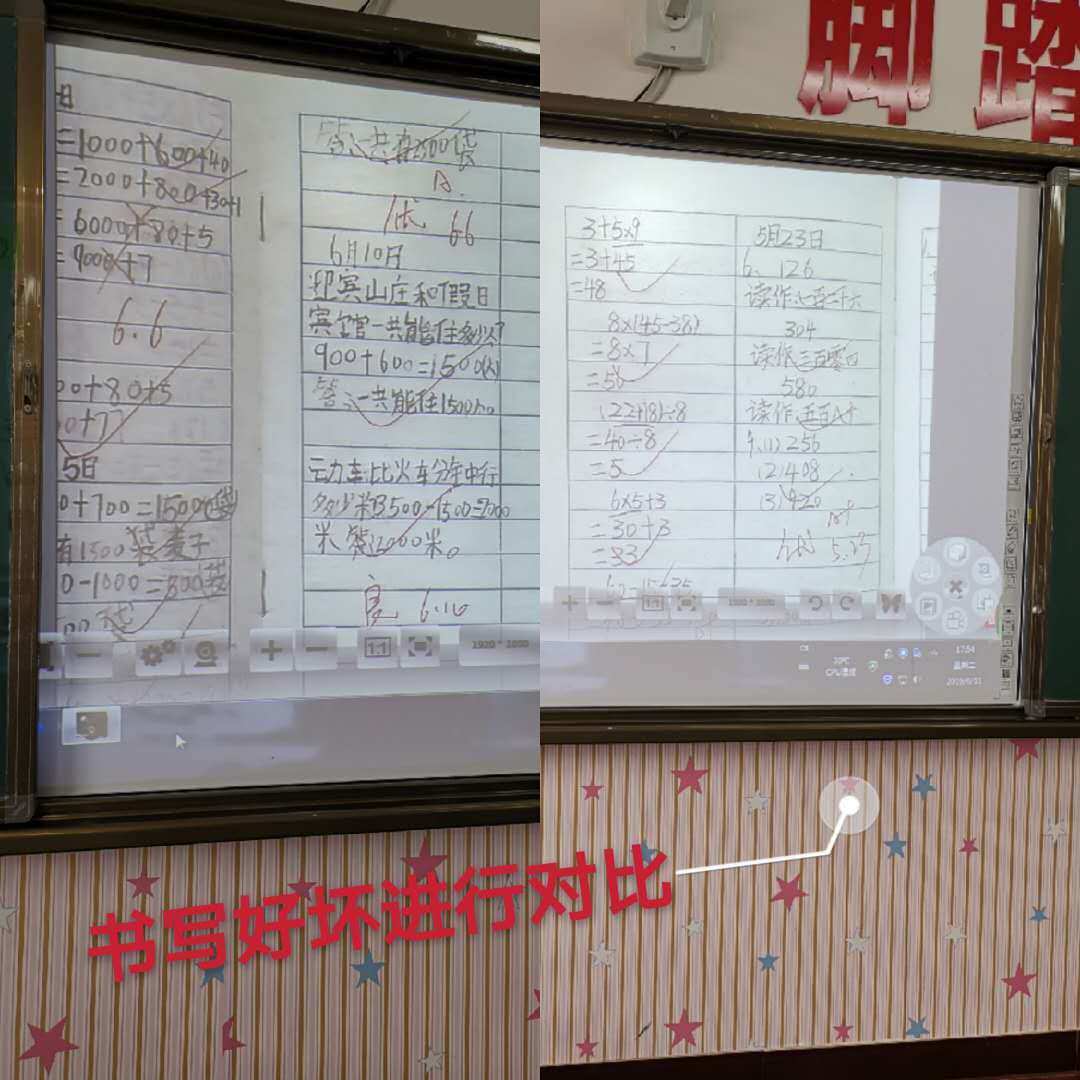 日
=1000+600+40
=2000+800+30+1
=6000+80+5
=9000+7
6.6
00+80+5
0+77
5日
0+700=1500(袋)
有1500袋麦子
0-1000=500(袋)
答:一共有1500袋
A.
优 6.6
6月10日
迎宾山庄和假日
宾馆一共能住多少人?
900+600=1500(人)
答:一共能住1500人。
动力车比火车分钟中行
多少米?3500-1500=2000
米 答:2000米。
良 6.10
1:1
1920 * 1080
脚踏
3+5×9
=3+45
=48
8×(45-38)
=8×7
=56
(22+18)÷8
=40÷8
=5
6×5+3
=30+3
=33
5月23日
6、126
读作:七百二十六
304
读作:三百零四
580
读作:五百八十
9.(1)256
(2)408
(3)420
优 5.27
1:1
17:54
30℃
CPU温度
星期二
书写好坏进行对比